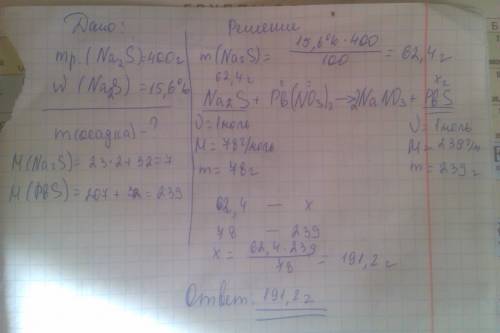 Дано:
mр.(Na₂S)=400г
w(Na₂S)=15,6%
m(осадка)-?
M(Na₂S)=23·2+32=7
M(PbS)=207+32=239
Решение
m(Na₂S)= 15,6%·400 / 100 = 62,4г
62,4г xг
Na₂S+Pb(NO₃)₂→2NaNO₃+PbS
ν=1моль ν=1моль
M=78г/моль M=239г/м
m=78г m=239г
62,4 — x
78 — 239
x= 62,4·239 / 78 = 191,2г
Ответ: 191,2г